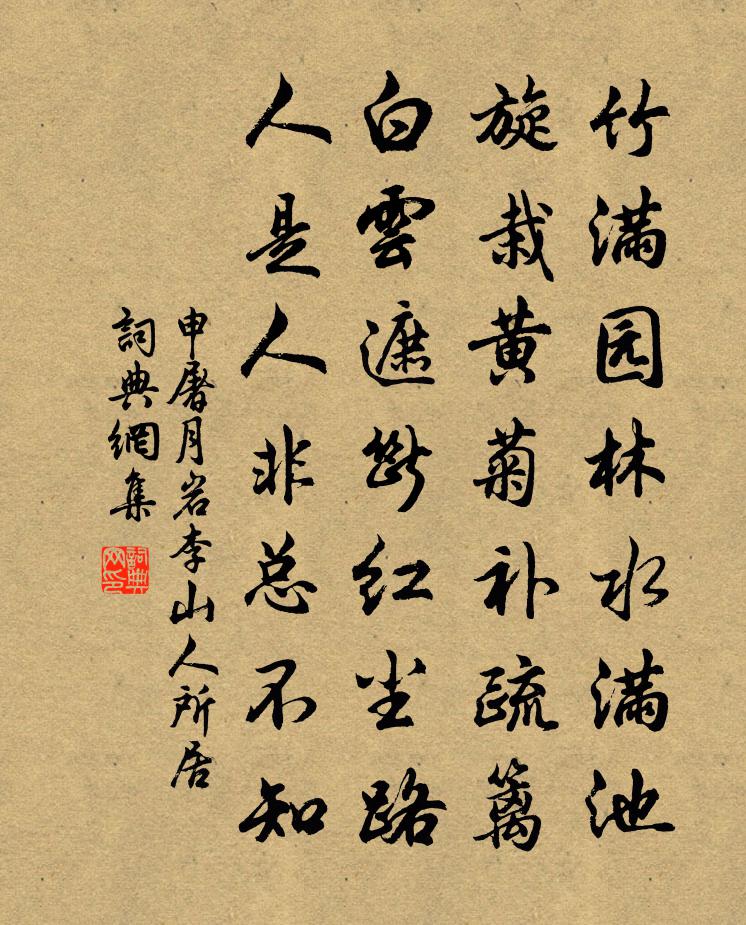 竹满园林水满池
旋栽黄菊补疏篱
白雲遮断红尘路
人是人非总不知
申屠月岩李山人所居
詞典網集
詞典网印